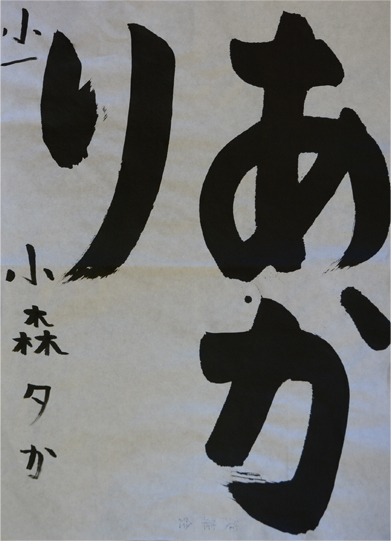 あか
り
小一
小森夕か